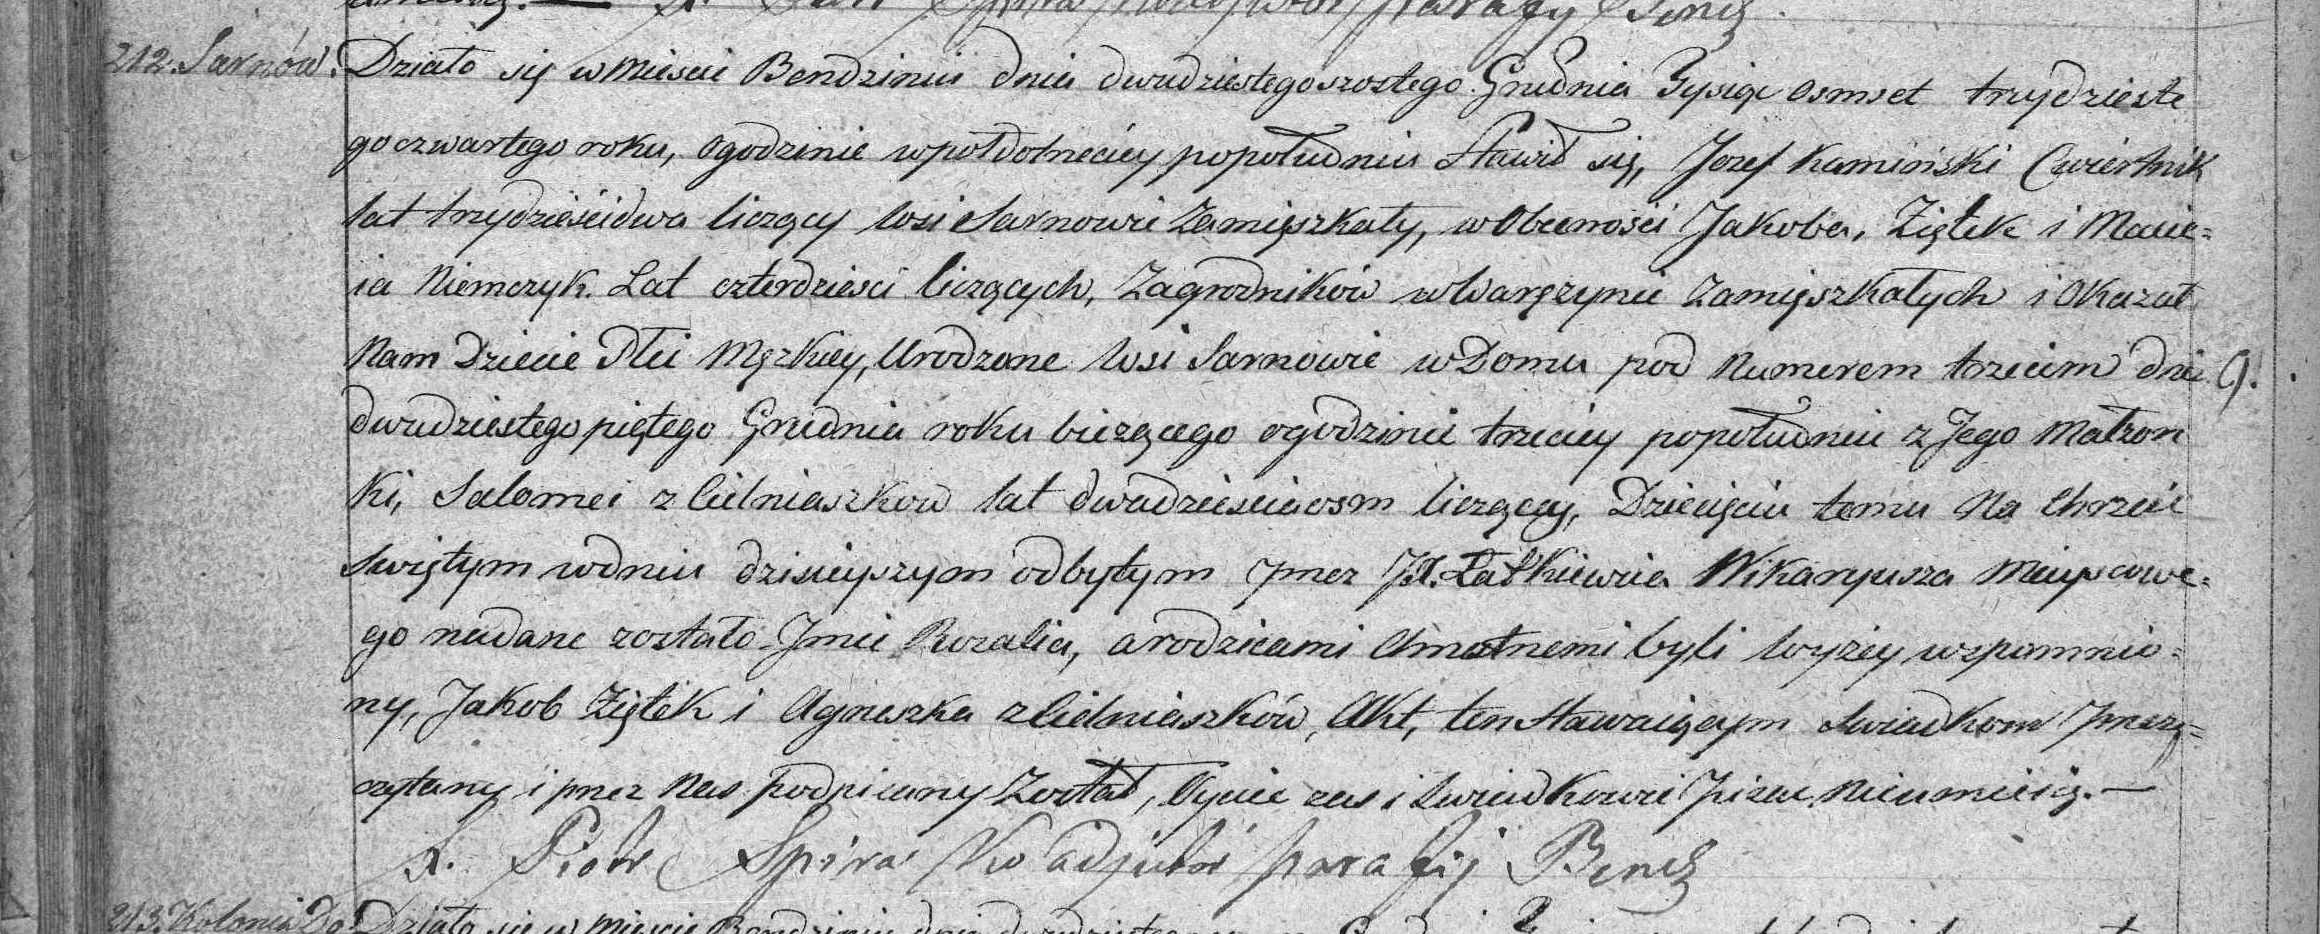 X. Piotr Spira Koadjutor parafij Bendz
212. Sarnów. Działo się w Miescie Bendzinie dnia dwudziestegoszostego Grudnia Tysiąc osmset trzydzieste
goczwartego roku, ogodzinie wpołdotrzeciey popołudniu Stawił się, Jozef Kamiński Cwiertnik
lat trzydzieścidwa liczący Wsi Sarnowie Zamięszkały, w Obecności Jakoba, Ziętek i Macie=
ia Niemczyk. Lat czterdzieści liczących, Zagrodników w Waręzynie Zamięszkałych i Okazał
Nam Dziecie Płci Męzkiey, Urodzone Wsi Sarnowie w Domu pod Numerem trzecim dnia 9.
dwudziestego piętego Grudnia roku bieżącego ogodzinie trzeciey popołudniu z Jego Małzon
ki, Salomei z Cielniaszkow lat dwadzieściaosm liczącey, Dziecięciu temu Na Chrzcie
Swiętym wdniu dzisieyszym odbytym przez JX. Łatkiewicza Wikaryusza Mieyscowe=
go nadane zostało Jmie Rozalia, a rodzicami Chrzestnemi byli wyżey wspomnio=
ny, Jakob Ziętek i Agnieszka z Cielniaszków, Akt, ten Stawaiącym Swiadkom przeczy=
czytany i przez Nas podpisany Został, Oyciec zas i Swiadkowie Pisać Nieumieią.—
X. Piotr Spira Koadjutor parafij Bendz
213. Kolonia Do Działo się w Mieście Bendzinie dnia